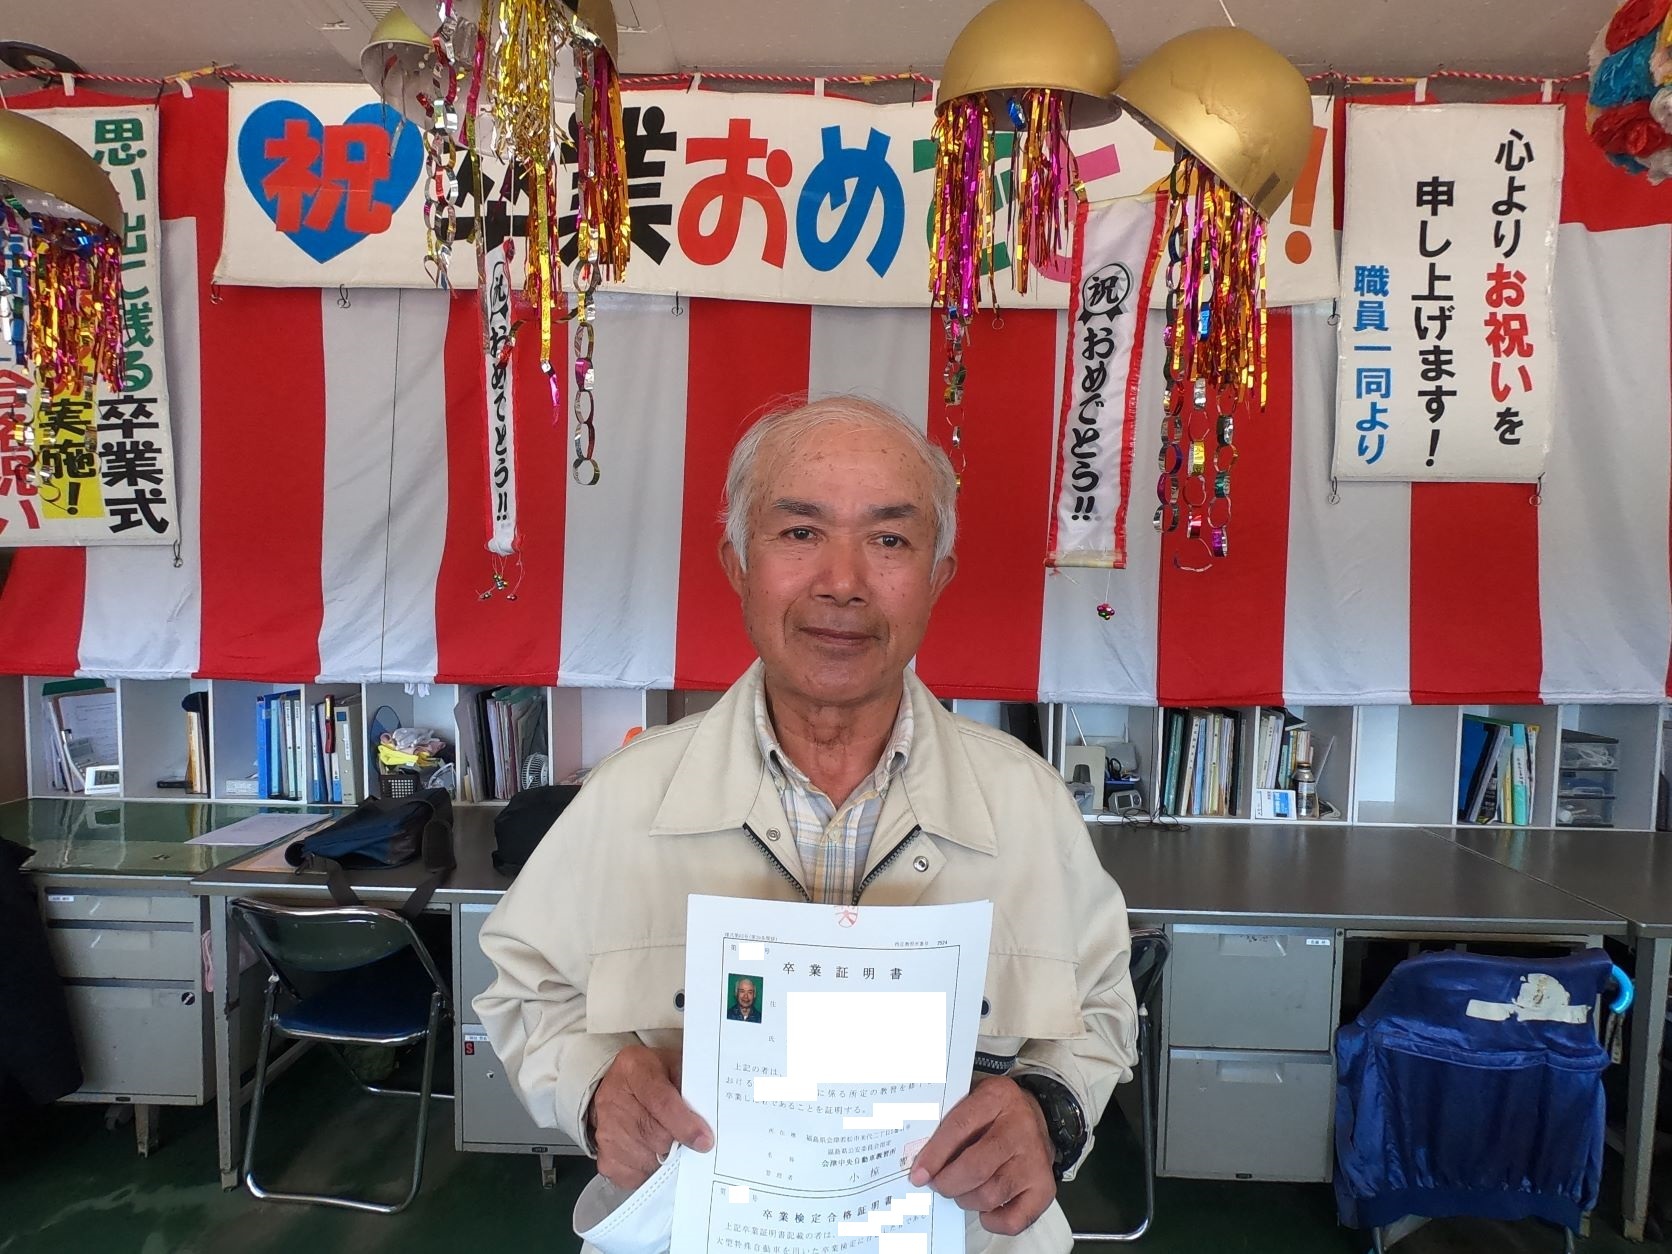 思い出に残る卒業式
実施！
祝
卒業おめでとう！
祝おめでとう!!
祝おめでとう!!
心よりお祝いを
申し上げます！
職員一同より
第 号
2524
卒業証明書
住
氏
上記の者は、
おける に係る所定の教習を修了
卒業した者であることを証明する。
所在地 福島県会津若松市米代二丁目
福島県公安委員会指定
名称 会津中央自動車教習所
管理者 小椋
第 号
卒業検定合格証明書
上記卒業証明書記載の者は、
大型特殊自動車を用いた卒業検定に合
S